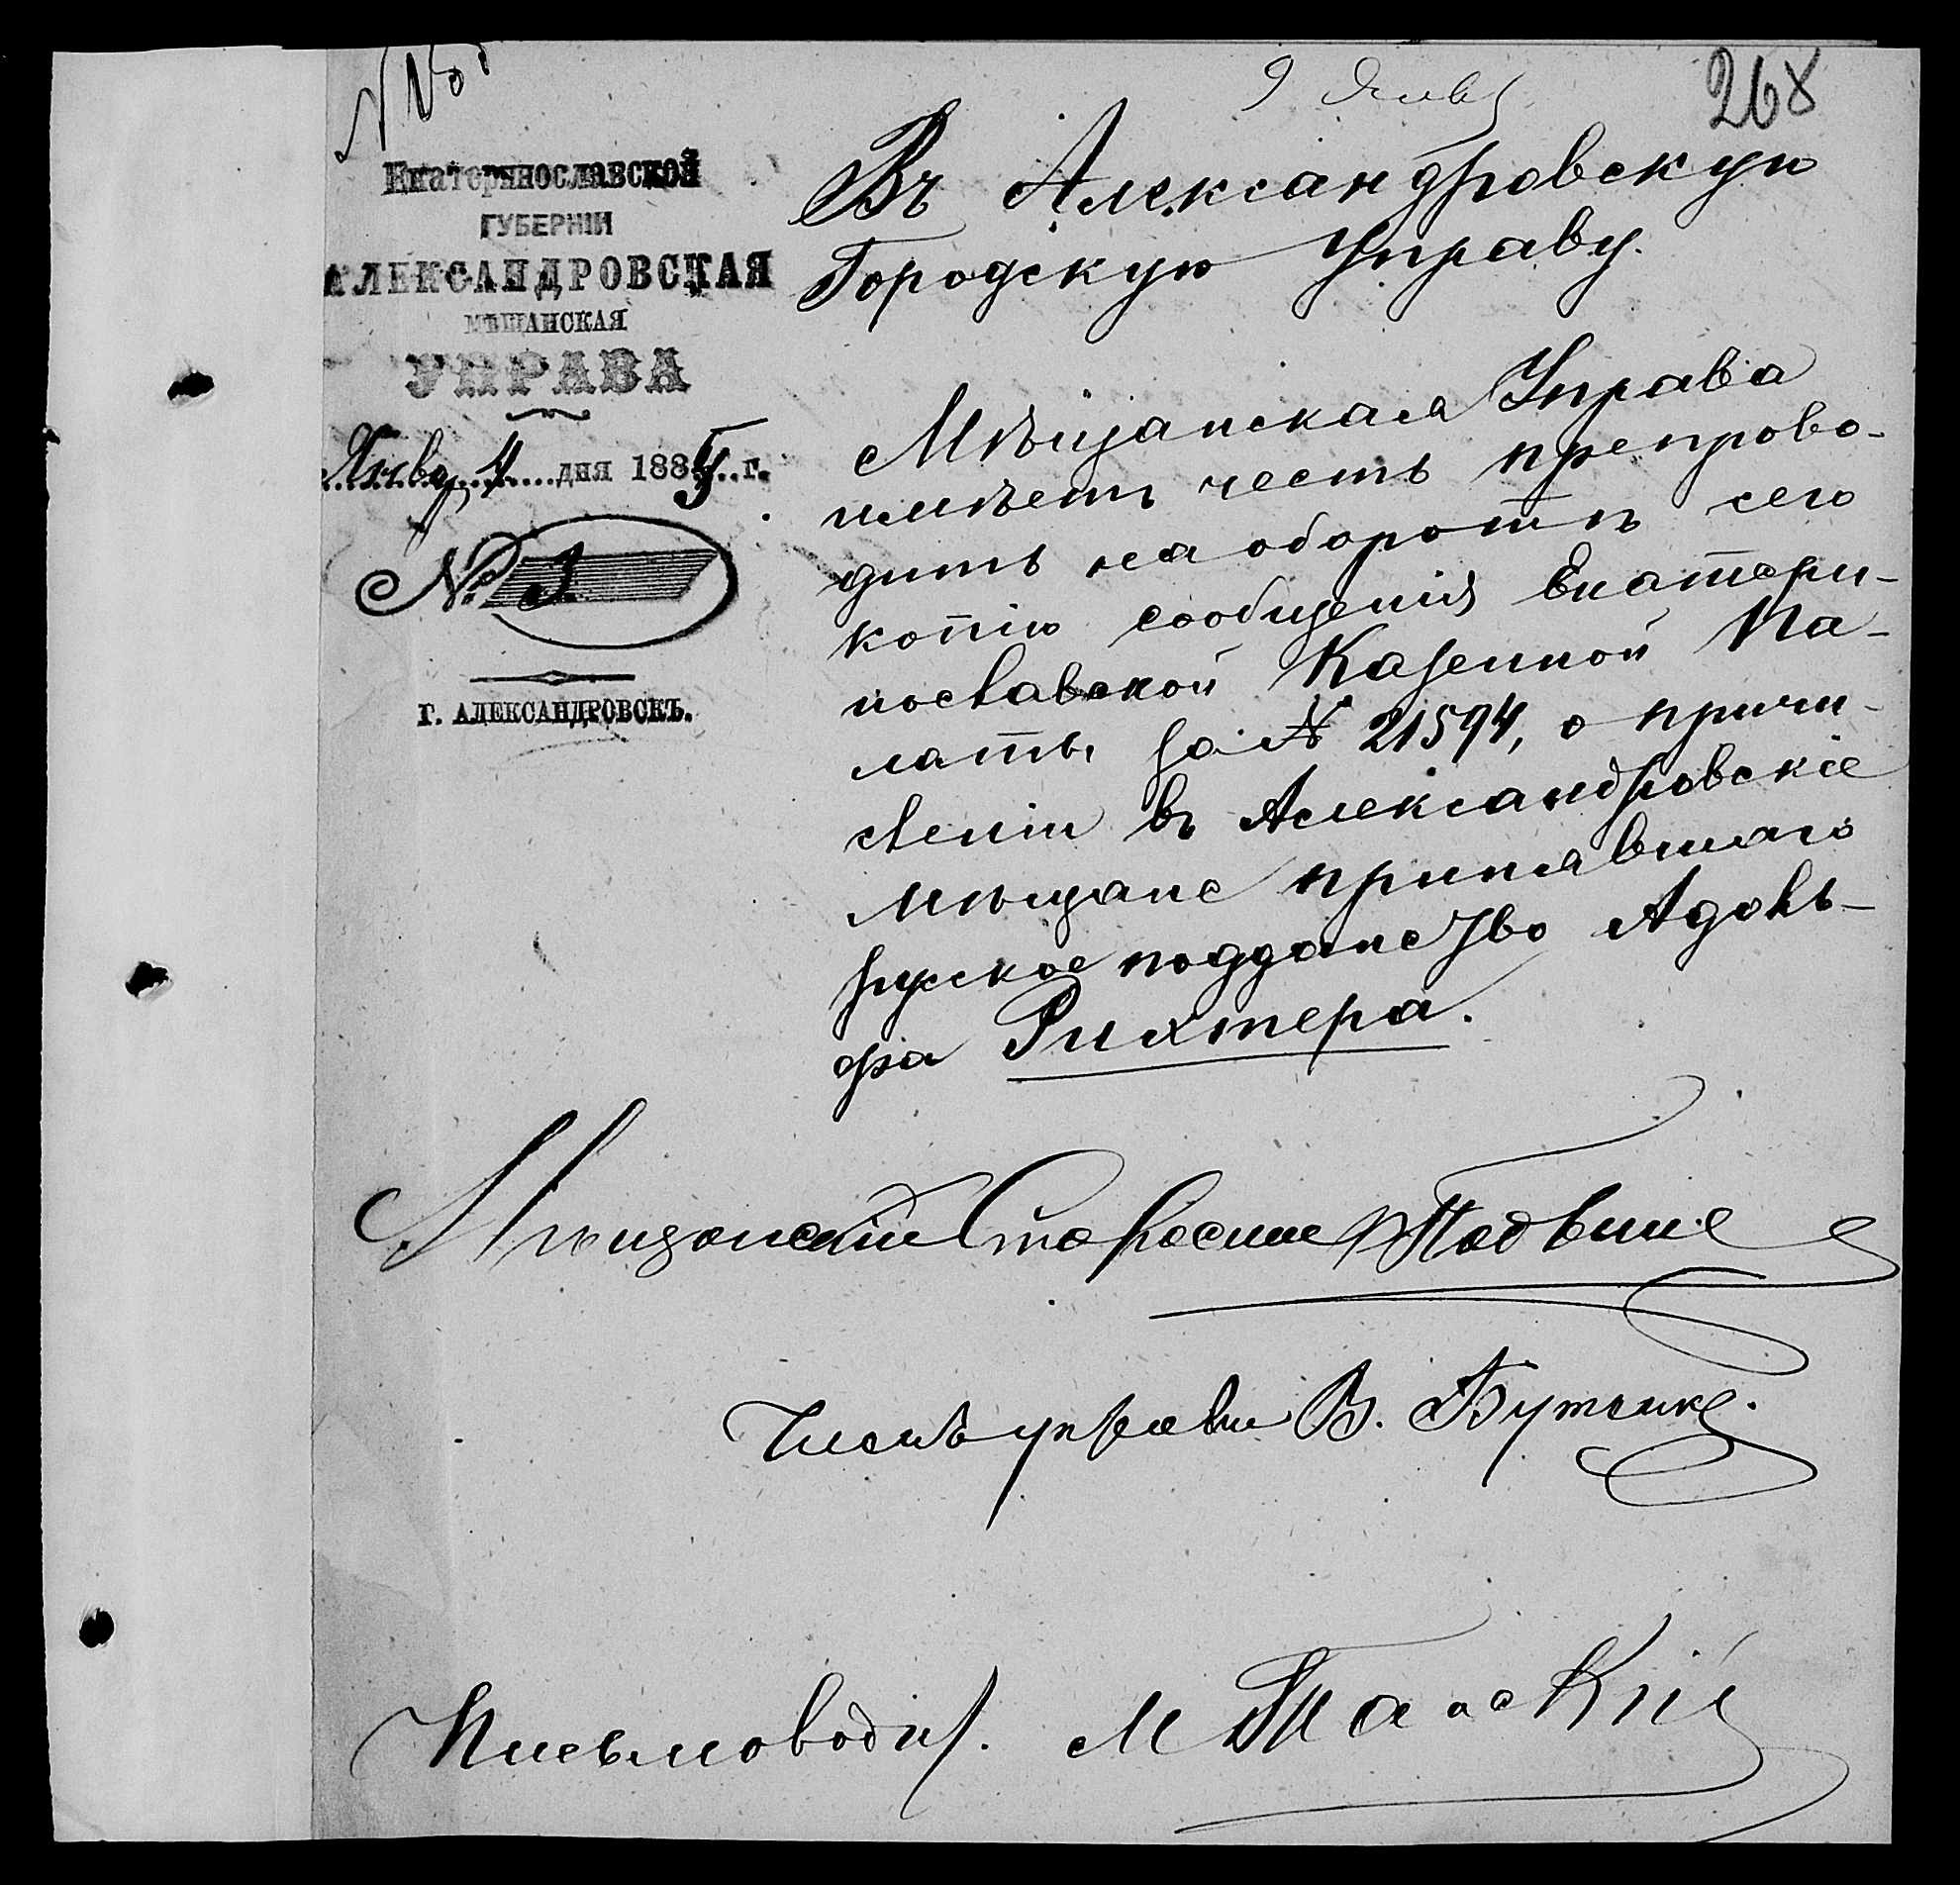 268
9 Янв
Екатеринославской
ГУБЕРНІИ
АЛЕКСАНДРОВСКАЯ
МѢЩАНСКАЯ
УПРАВА
Янва 4 дня 1885 г.
№ 3
Г. АЛЕКСАНДРОВСКЪ.
Въ Александровскую
Городскую Управу.
Мѣщанская Управа
имѣетъ честь препрово-
дить на оборотѣ сего
копію сообщенія Екатери-
нославской Казенной Па-
латы за № 21594, о причи-
сленіи въ Александровскіе
мѣщане принявшаго
руское подданство Адоль-
фа Рихтера.
Мѣщанскій Староста
Членъ управы В. Бутенко.
Письмоводит. М